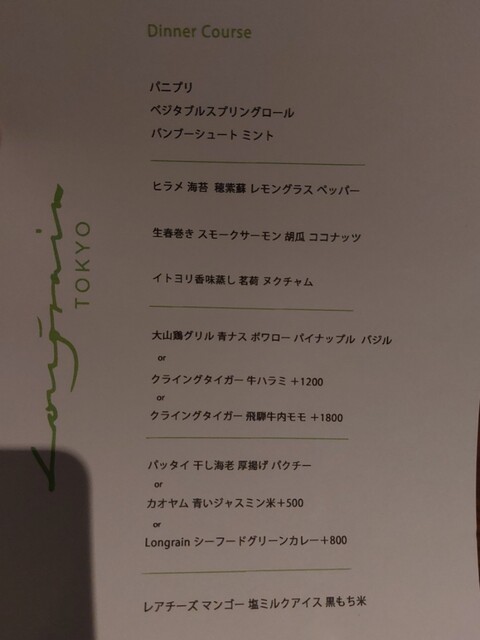 Dinner Course
パニプリ
ベジタブルスプリングロール
バンブーシュート ミント
ヒラメ 海苔 穂紫蘇 レモングラス ペッパー
生春巻き スモークサーモン 胡瓜 ココナッツ
イトヨリ香味蒸し 茗荷 ヌクチャム
大山鶏グリル 青ナス ポワロー パイナップル バジル
or
クライングタイガー 牛ハラミ +1200
or
クライングタイガー 飛騨牛内モモ +1800
パッタイ 干し海老 厚揚げ パクチー
or
カオヤム 青いジャスミン米+500
or
Longrain シーフードグリーンカレー+800
レアチーズ マンゴー 塩ミルクアイス 黒もち米
Longrain
TOKYO